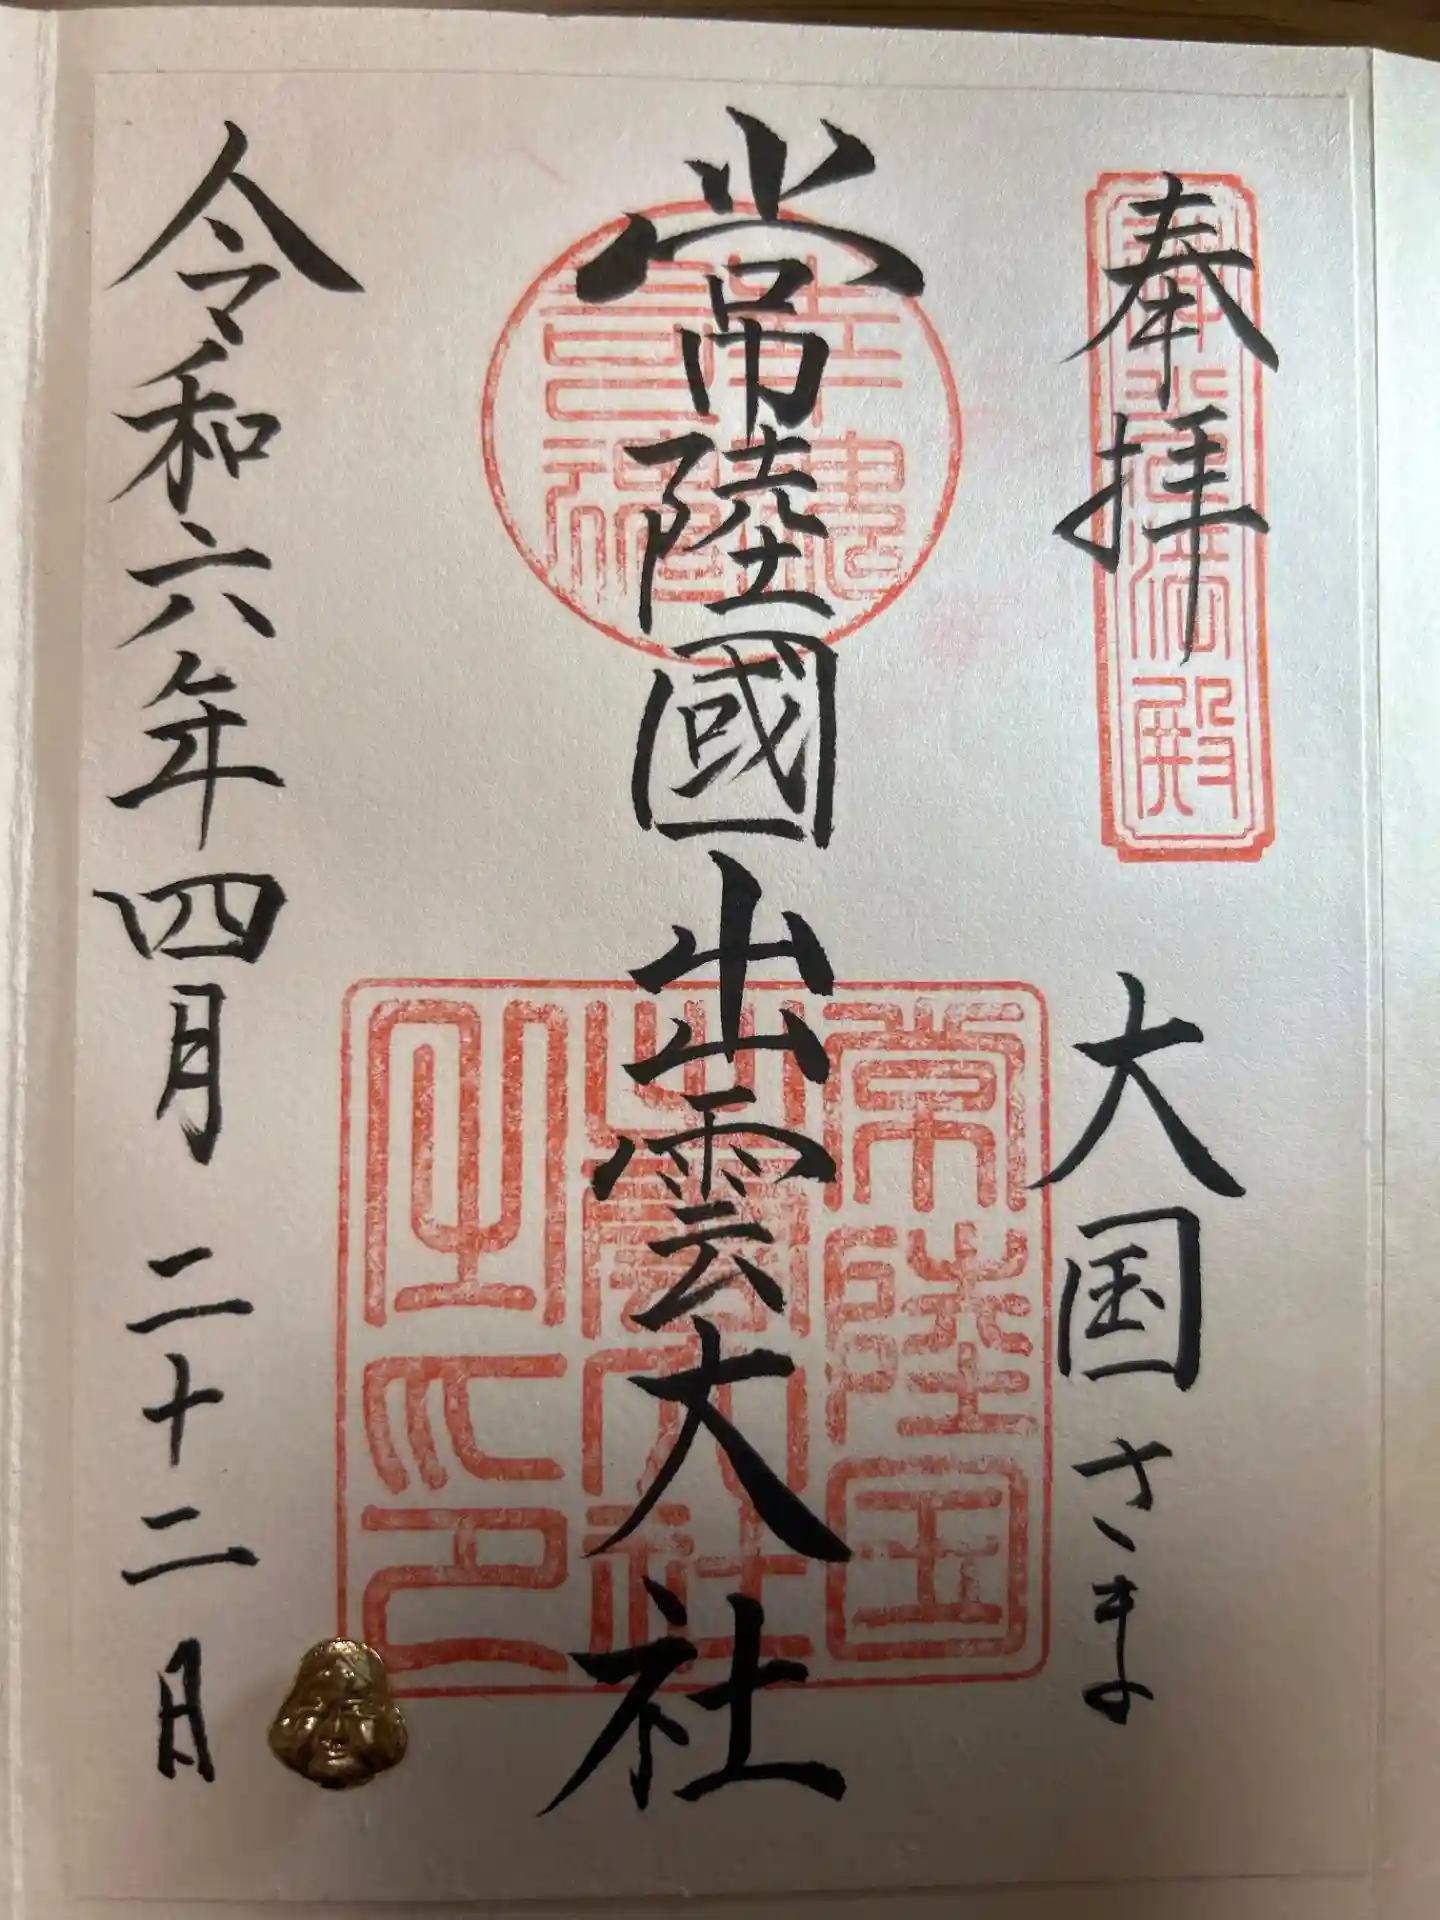 奉拝
大国さま
常陸國出雲大社
令和六年四月二十二日
常陸国
出雲大社